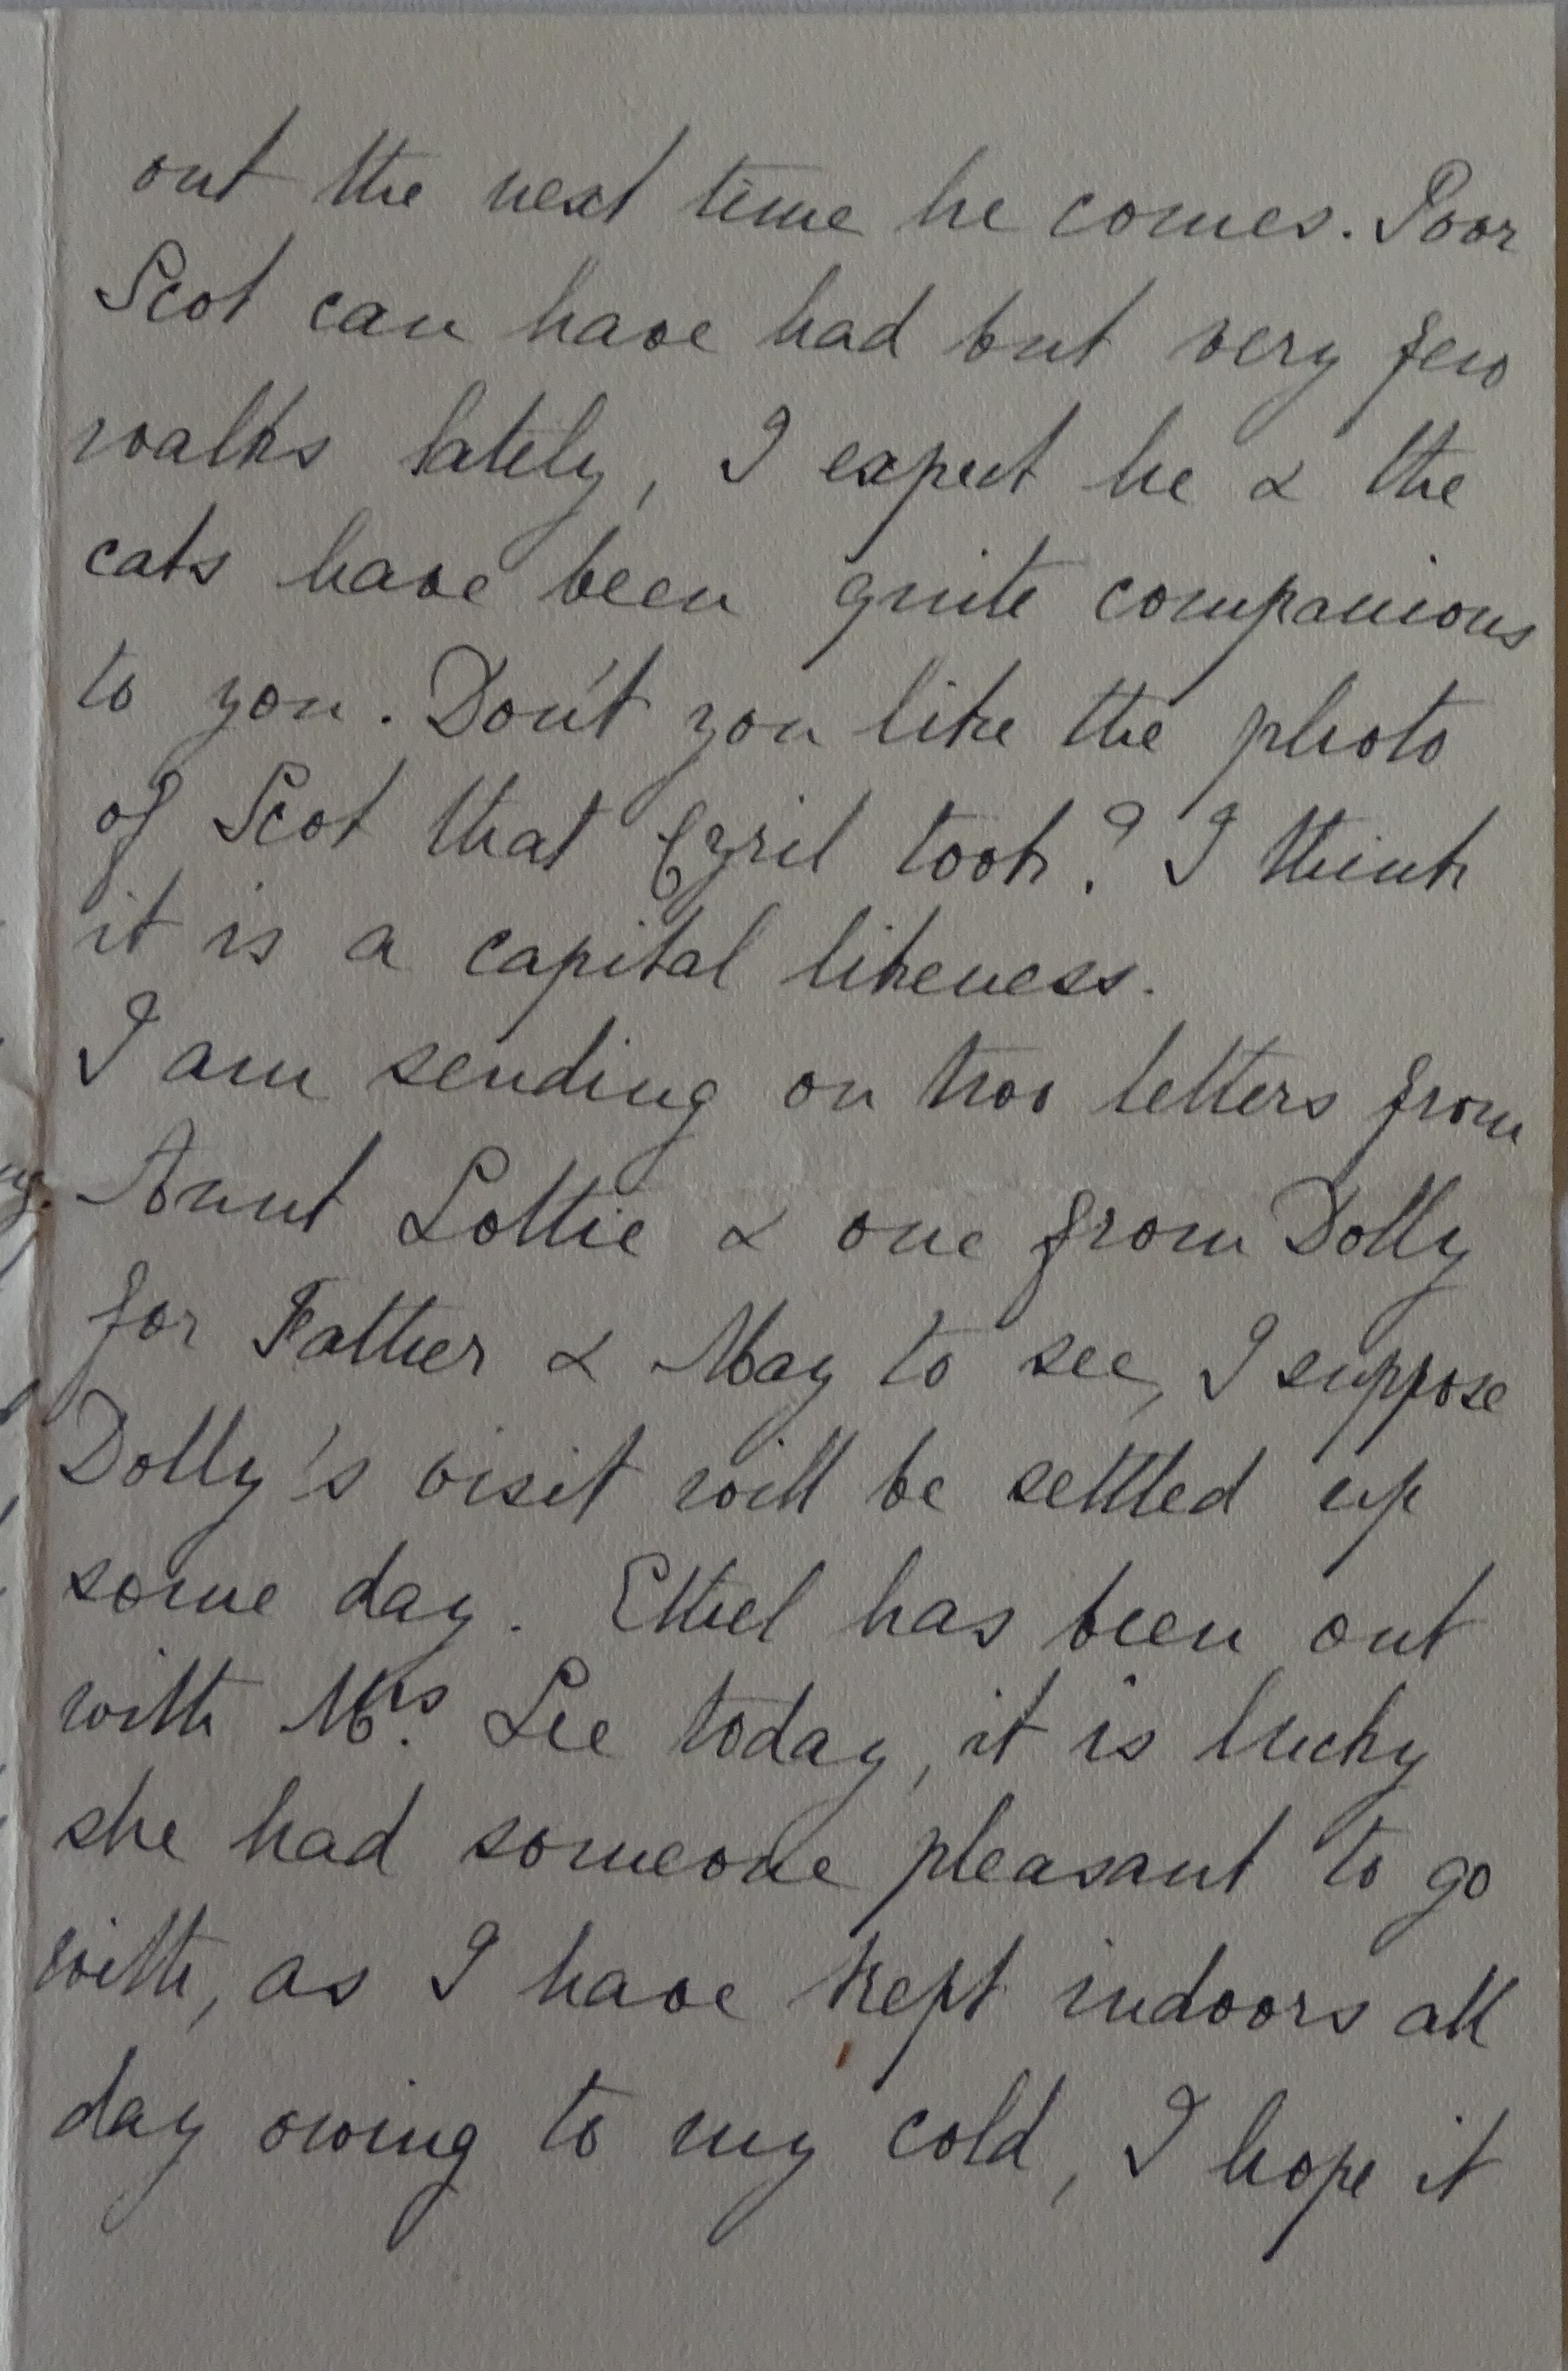 out the next time he comes. Poor
Scot can have had but very few
walks lately, I expect he & the
cats have been quite companions
to you. Don't you like the photo
of Scot that Cyril took? I think
it is a capital likeness.
I am sending on two letters from
Aunt Lottie & one from Dolly
for Father & May to see, I suppose
Dolly's visit will be settled up
some day. Ethel has been out
with Mrs. Lee today, it is lucky
she had someone pleasant to go
with, as I have kept indoors all
day owing to my cold, I hope it